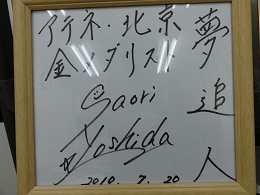 夢追人
アテネ・北京
金メダリスト
Saori
Yoshida
2010. 7. 20